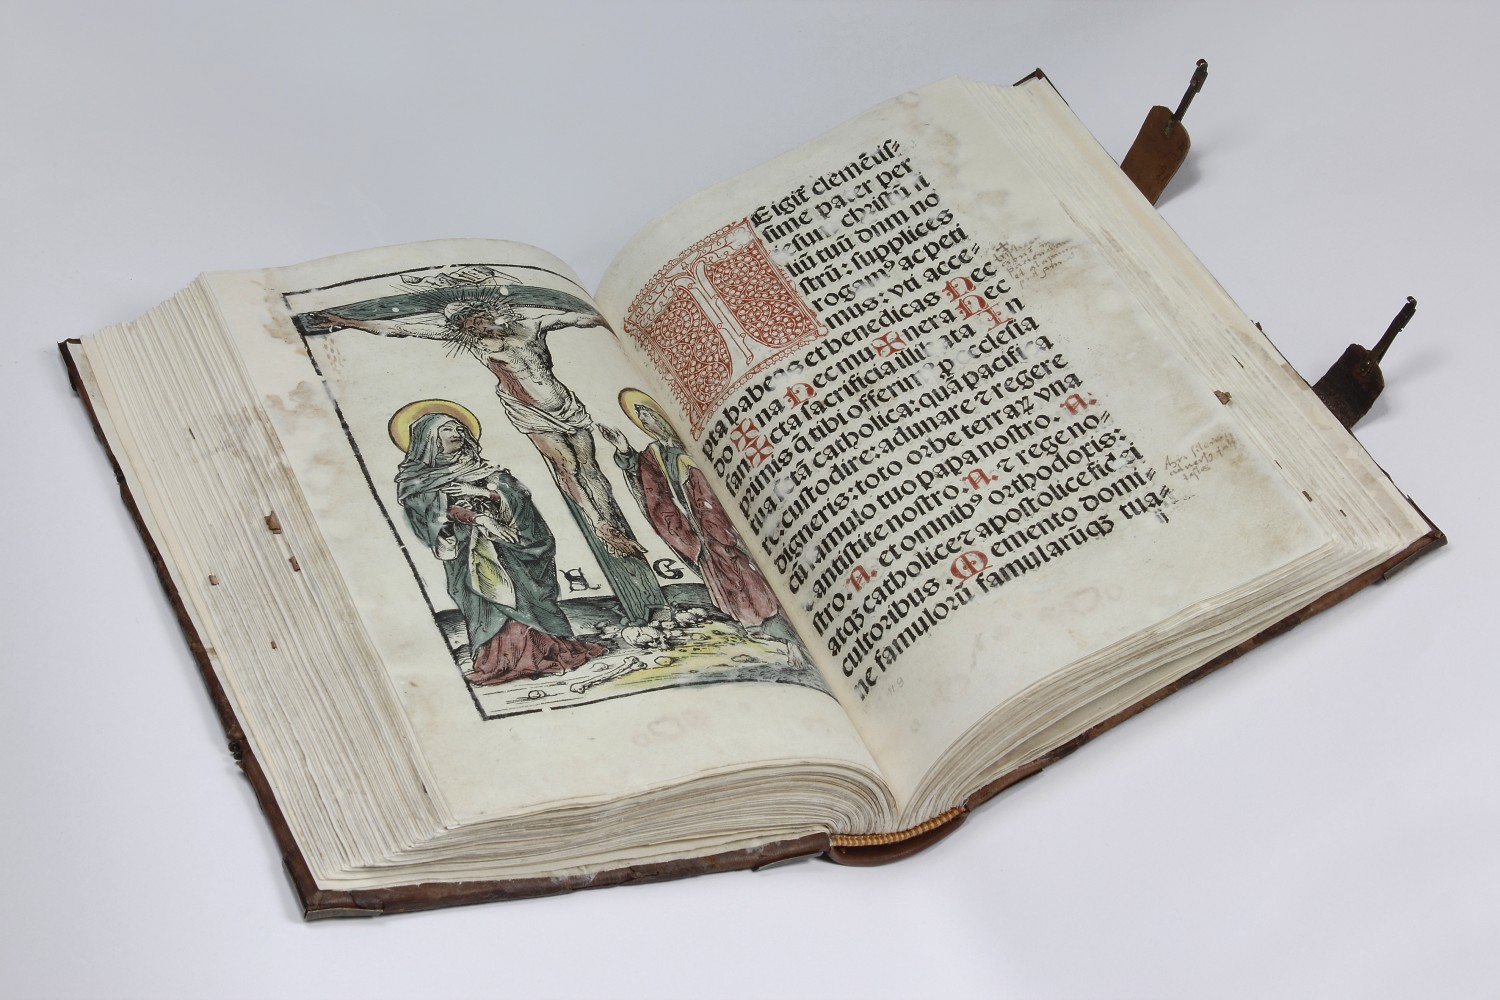 S G
TEigit᷑ clemētis⸗
sime pater per
iesum christū fi
liū tuū dn̄m no
strū: supplices
rogamꝰ ac peti
mus: vti acce⸗
pta habeas et benedicas H̄ec
do ✠ na H̄ec mu ✠ nera H̄ec
san ✠ cta sacrificia illibata In
primis q̄ tibi offerimꝰ p ecclesia
tua scā catholica: quā pacifica
re: custodire: adunare ⁊ regere
digneris: toto orbe terraꝝ vna
cū famulo tuo papa nostro. N.
antistite nostro. N. ⁊ rege no⸗
stro. N. et omnibꝰ orthodoxis:
atqꝫ catholice ⁊ apostolice fidei
cultoribus. Memento domi⸗
ne famulorū famularūqꝫ tua⸗
119